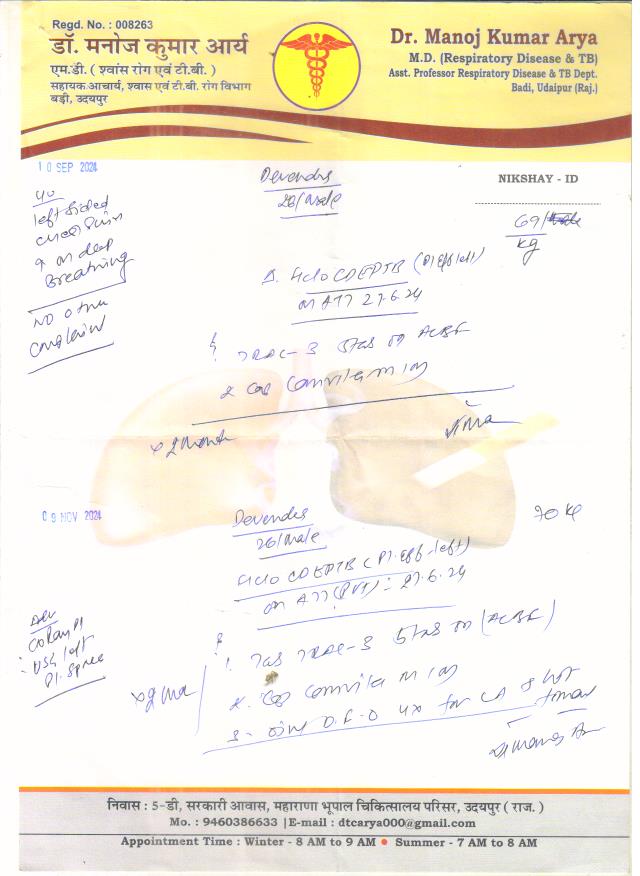 Regd. No. : 008263
डॉ. मनोज कुमार आर्य
एम.डी. ( श्वांस रोग एवं टी.बी. )
सहायक आचार्य, श्वास एवं टी.बी. रोग विभाग
बड़ी, उदयपुर
Dr. Manoj Kumar Arya
M.D. (Respiratory Disease & TB)
Asst. Professor Respiratory Disease & TB Dept.
Badi, Udaipur (Raj.)
10 SEP 2024
Devendra
26/male
NIKSHAY - ID
69/
kg
left sided
chest pain
on deep
Breathing
No other
complaint
H/o CDEPTB (Pl. eff left)
on ATT 27.6.24
3 tab on
Cap
x 2 month
09 NOV 2024
Devendra
26/male
70 kg
H/o CDEPTB (Pl. eff-left)
on ATT (PVT) - 27.6.24
Adv
USG left
Pl. space
1. Tab
3 tab on
2. Cap
3.
for LA
निवास : 5-डी, सरकारी आवास, महाराणा भूपाल चिकित्सालय परिसर, उदयपुर ( राज. )
Mo. : 9460386633 |E-mail : dtcarya000@gmail.com
Appointment Time : Winter - 8 AM to 9 AM ● Summer - 7 AM to 8 AM